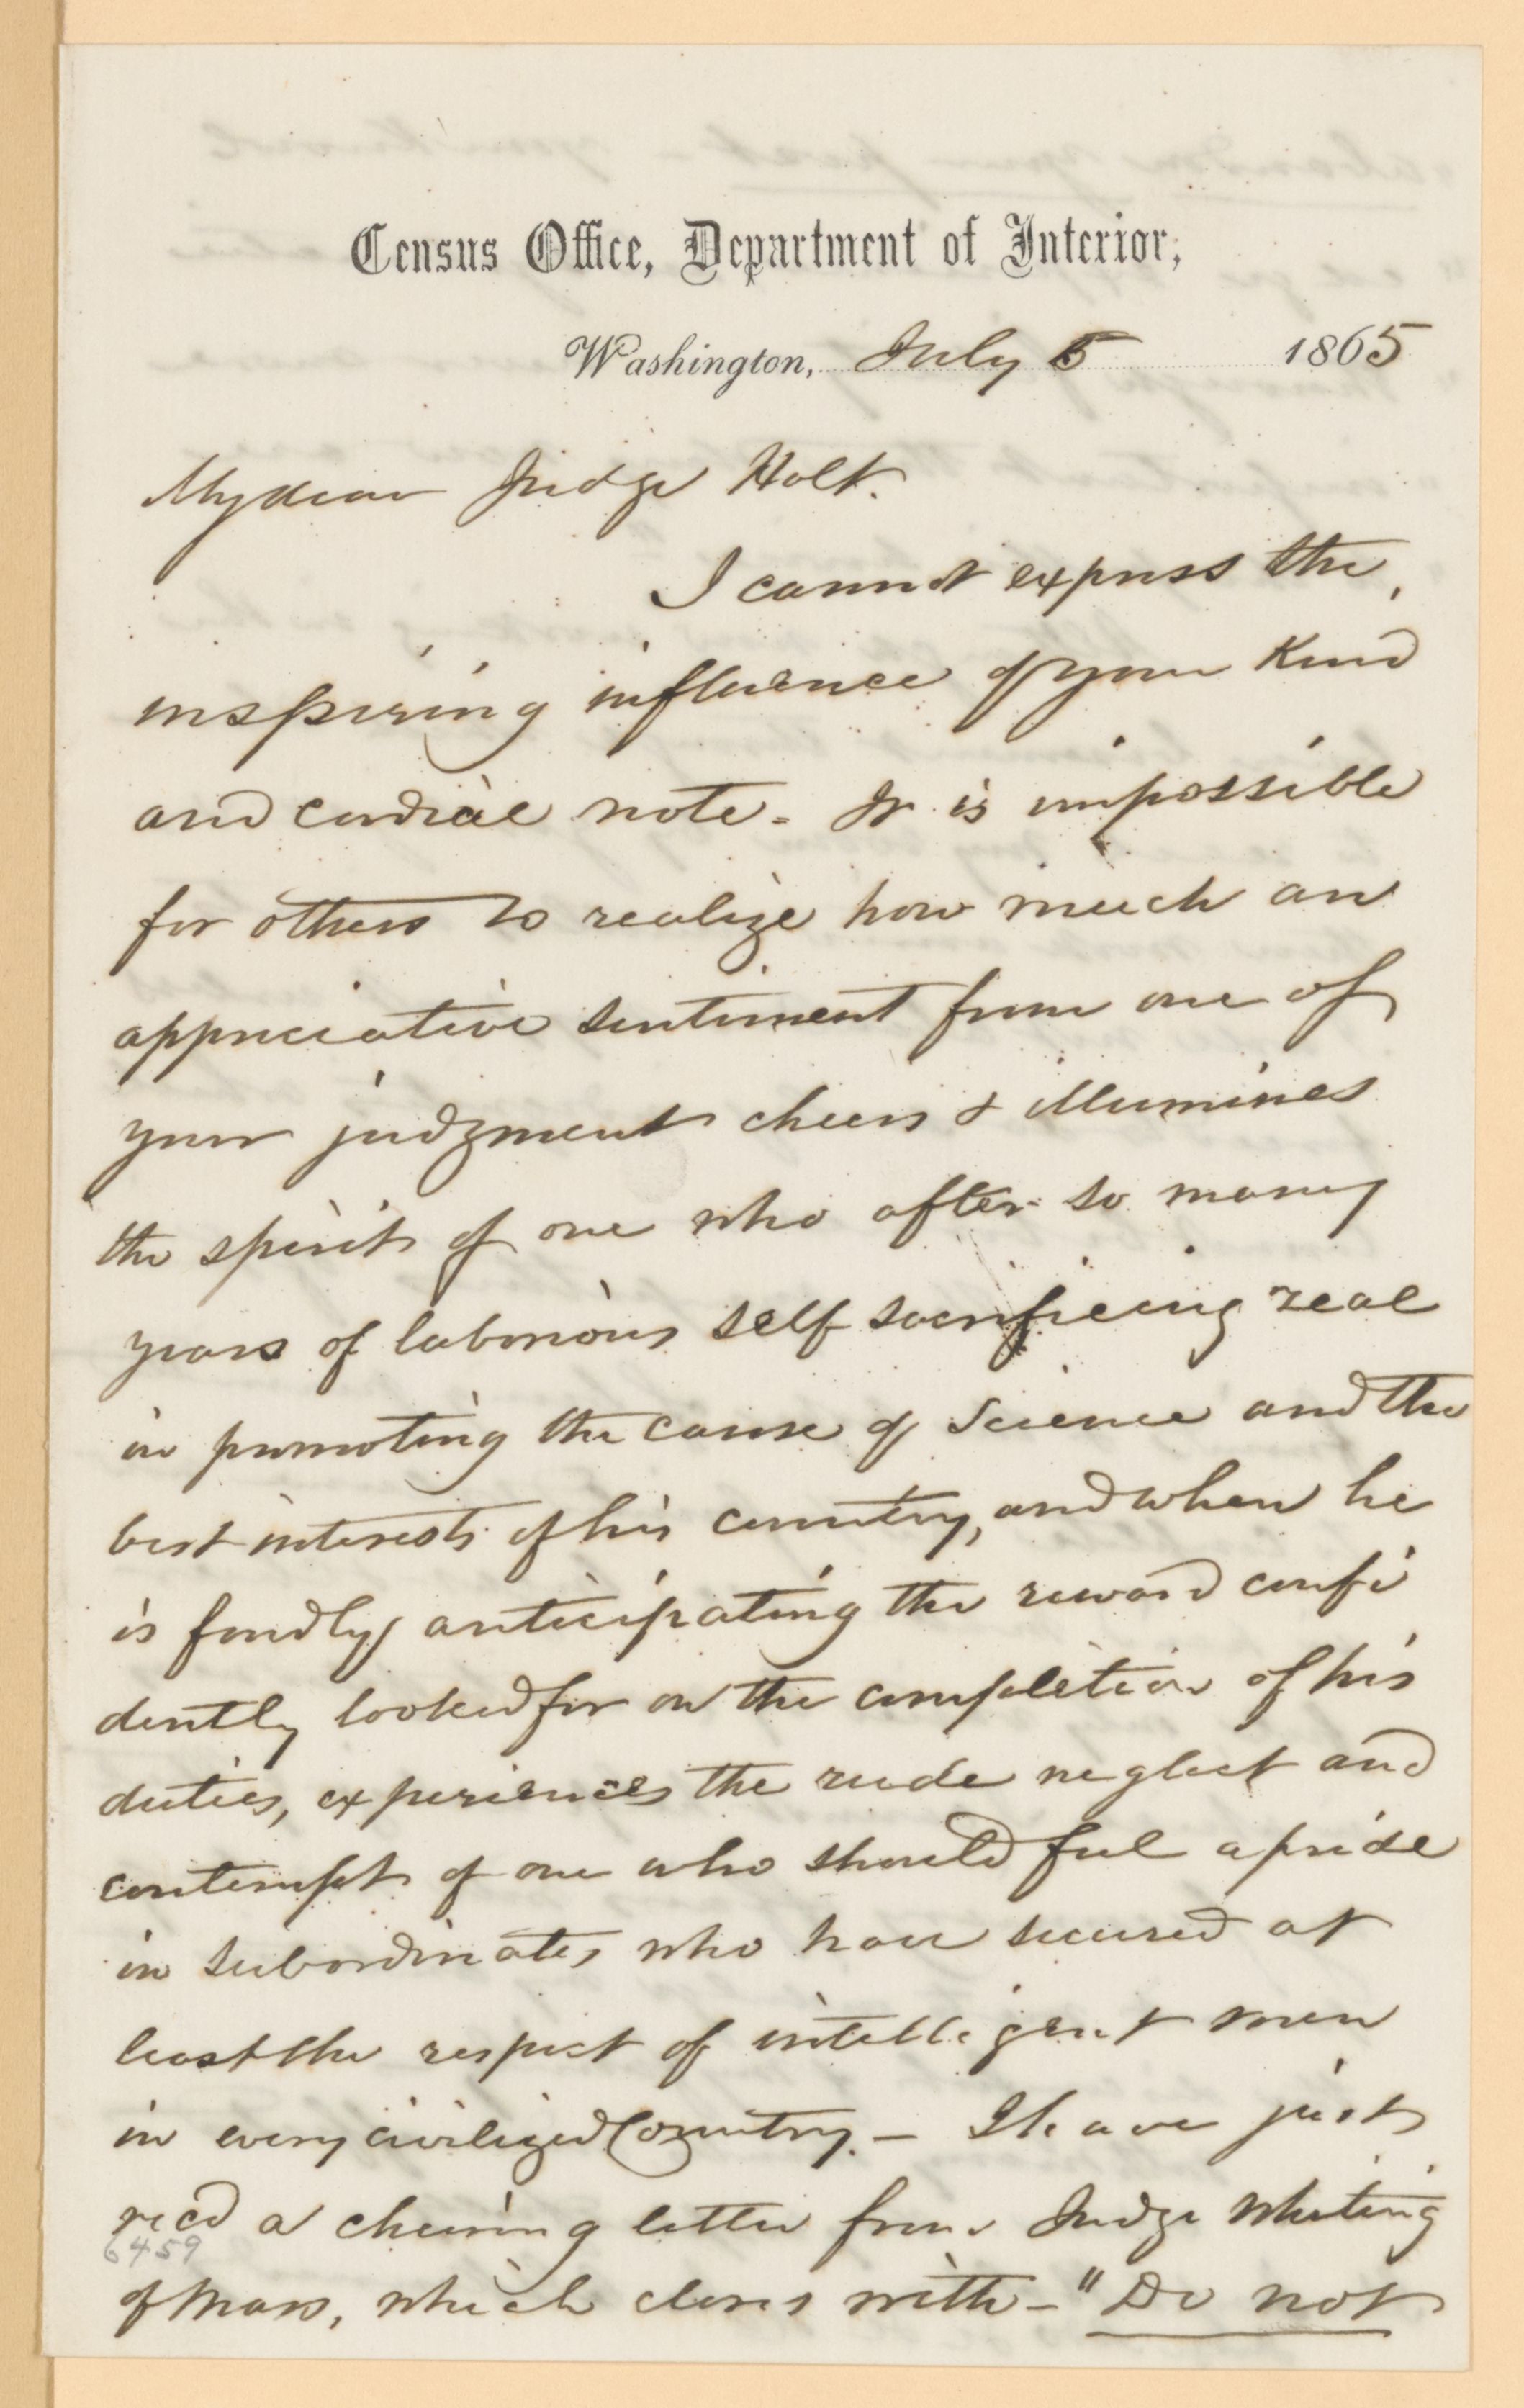 Census Office, Department of Interior,
Washington, July 5 1865
My dear Judge Holt.
I cannot express the
inspiring influence of your kind
and cordial note - It is impossible
for others to realize how much an
appreciative sentiment from one of
your judgment cheers & illumines
the spirit of one who after so many
years of laborious self sacrificing zeal
in promoting the cause of Science and the
best interests of his country, and when he
is fondly anticipating the reward confi
dently looked for on the completion of his
duties, experiences the rude neglect and
contempt of one who should feel a pride
in subordinates who have secured at
least the respect of intelligent men
in every civilized Country. - I have just
recd a cheering letter from Judge Whiting
6459
of Mass, which closes with - "Do not